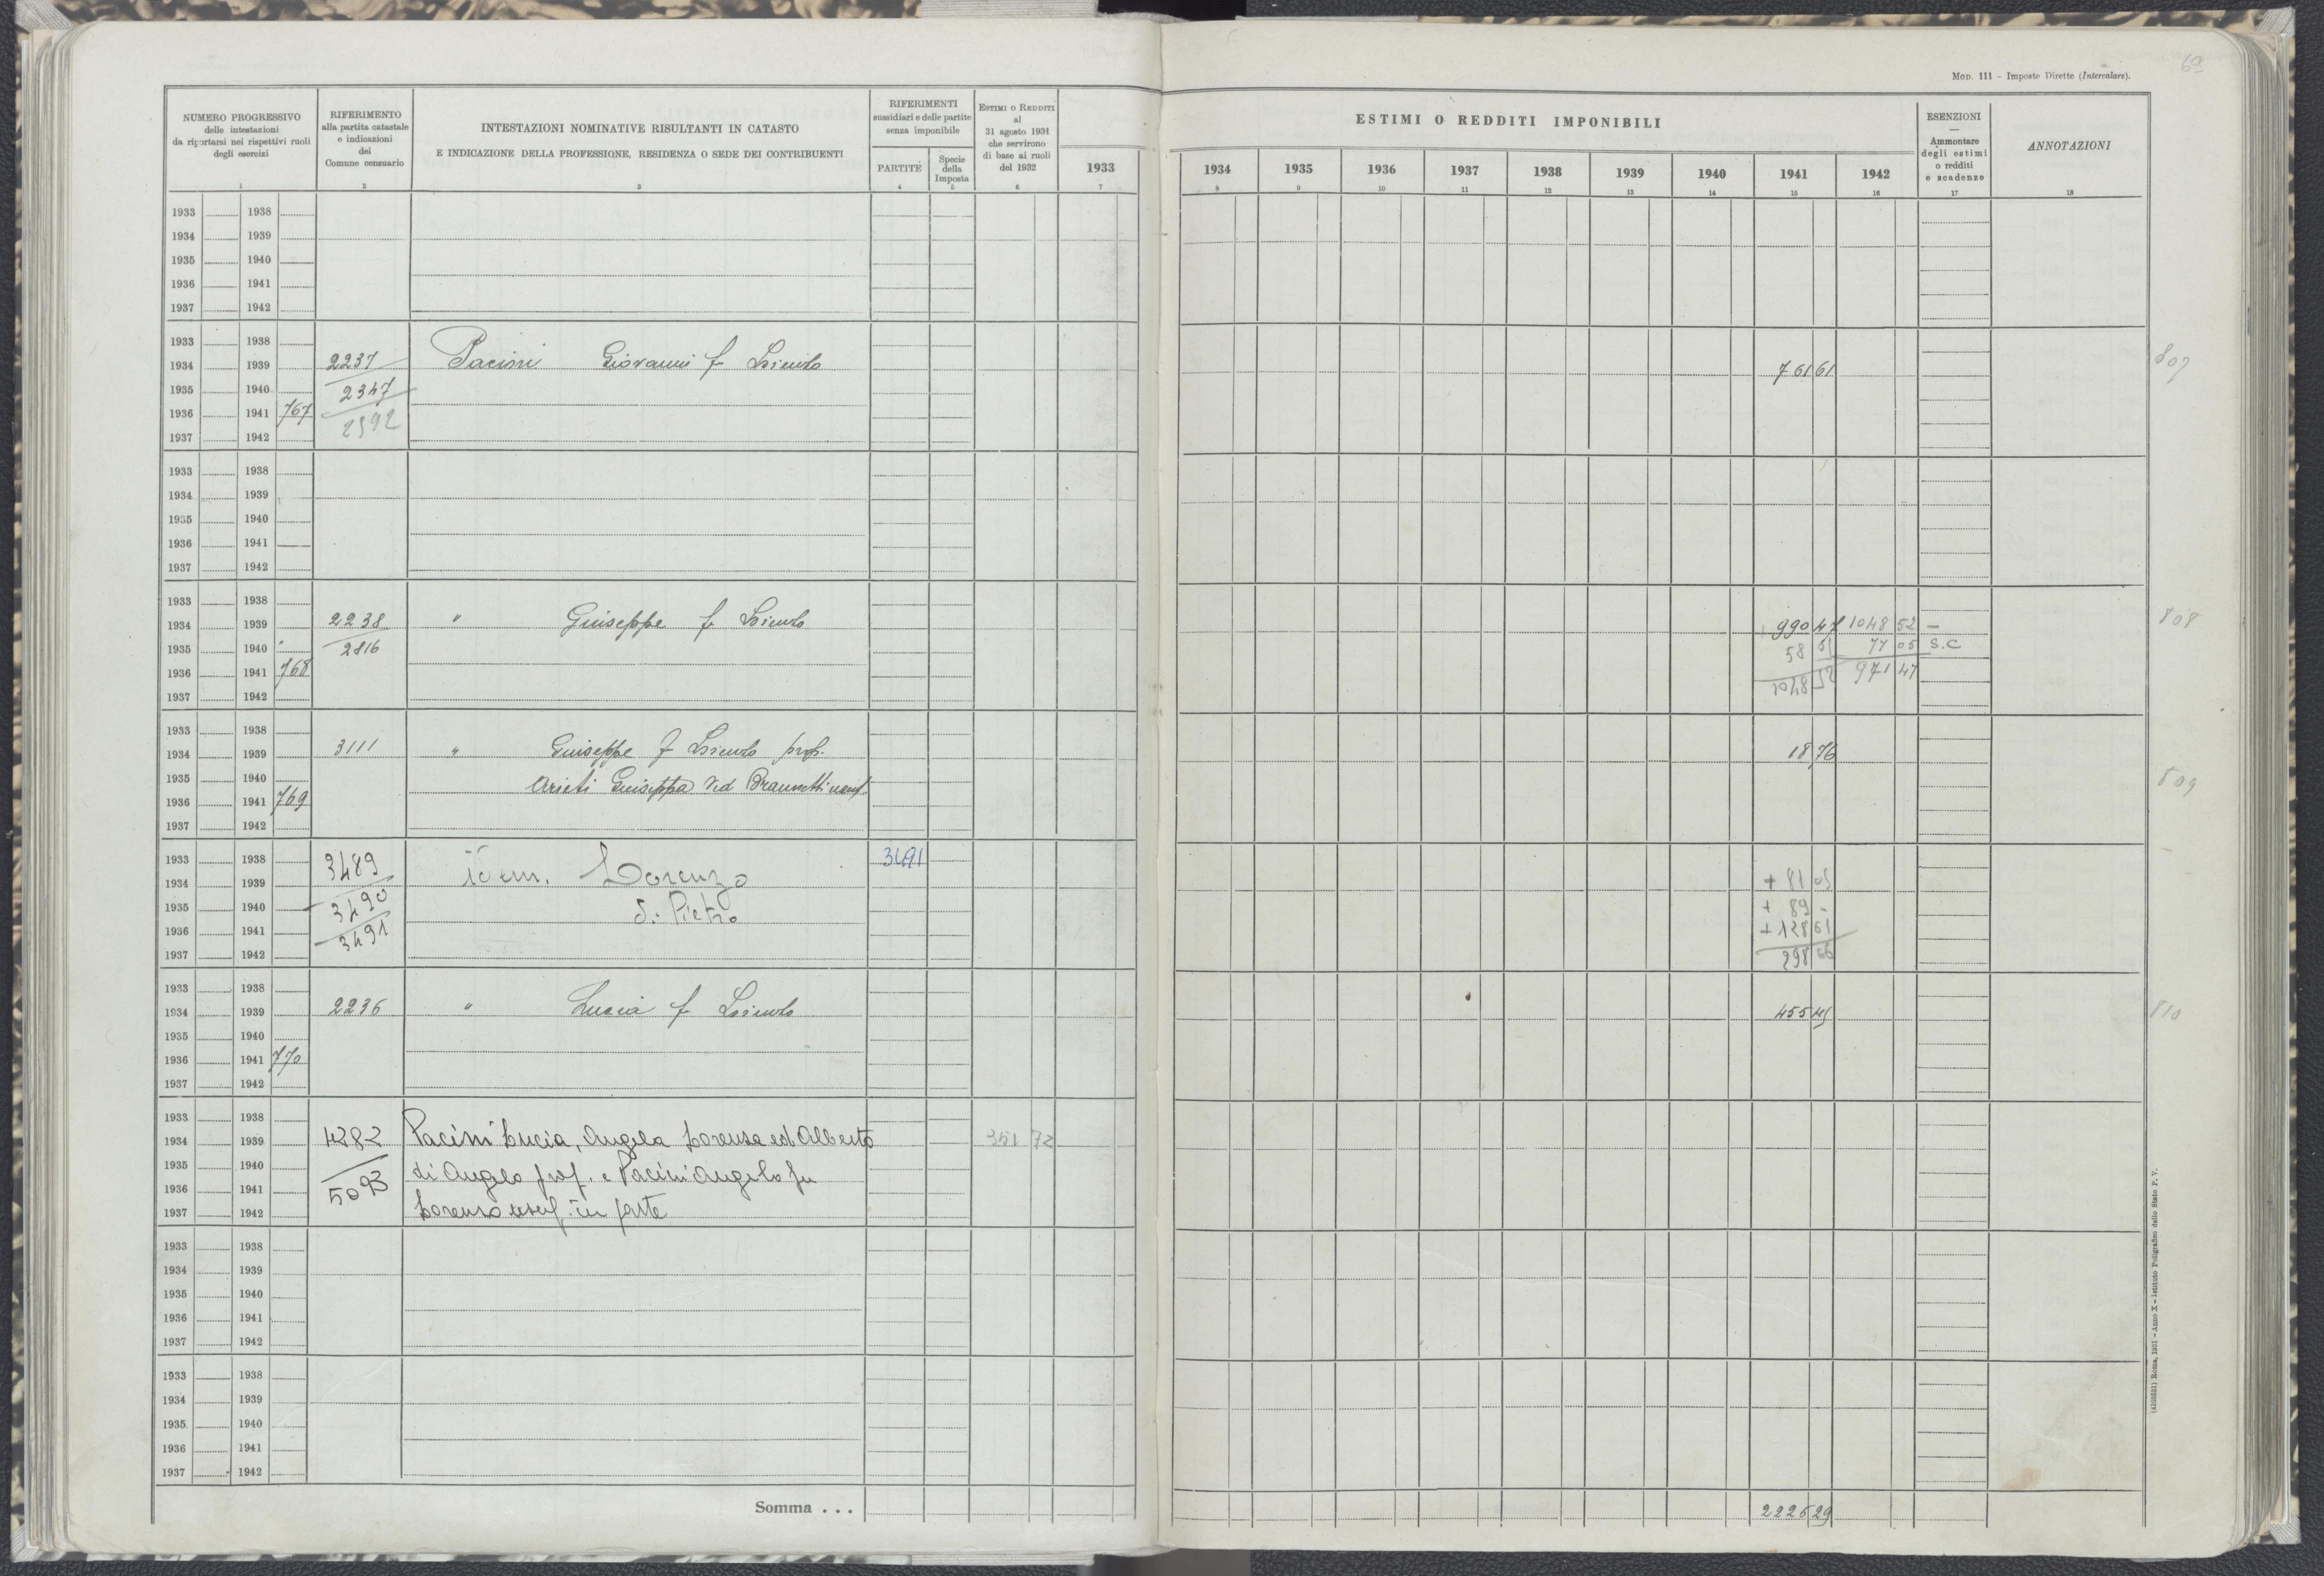 69
MOD. 111 - Imposte Dirette (Intercalare).
NUMERO PROGRESSIVO
delle intestazioni
da riportarsi nei rispettivi ruoli
degli esercizi
1
RIFERIMENTO
alla partita catastale
e indicazioni
del
Comune censuario
2
INTESTAZIONI NOMINATIVE RISULTANTI IN CATASTO
E INDICAZIONE DELLA PROFESSIONE, RESIDENZA O SEDE DEI CONTRIBUENTI
3
RIFERIMENTI
sussidiari e delle partite
senza imponibile
PARTITE
4
Specie
della
Imposta
5
ESTIMI O REDDITI
al
31 agosto 1931
che servirono
di base ai ruoli
del 1932
6
1933
7
ESTIMI O REDDITI IMPONIBILI
1934 1935 1936 1937 1938 1939 1940 1941 1942
8 9 10 11 12 13 14 15 16
ESENZIONI
—
Ammontare
degli estimi
o redditi
e scadenze
17
ANNOTAZIONI
18
1933 1938
1934 1939
1935 1940
1936 1941
1937 1942
1933 1938
1934 1939 2237 Pacini Giovanni f Lorenzo 761 61 807
1935 1940 2347
1936 1941 767 2592
1937 1942
1933 1938
1934 1939
1935 1940
1936 1941
1937 1942
1933 1938
1934 1939 2238 " Giuseppe f Lorenzo 990 47 1048 52 — 808
1935 1940 2816 58 05 77 05 S.C
1936 1941 768 1048 52 971 47
1937 1942
1933 1938
1934 1939 3111 " Giuseppe f Lorenzo prop. 18 76
1935 1940 Giuseppa ved 809
1936 1941 769
1937 1942
1933 1938 3489 idem. Lorenzo 3491
1934 1939 + 81 05
1935 1940 3490 di Pietro + 89 -
1936 1941 3491 + 128 61
1937 1942 298 66
1933 1938
1934 1939 2236 " Lucia f Lorenzo 455 45 810
1935 1940
1936 1941 770
1937 1942
1933 1938
1934 1939 4282 Pacini Lucia, Angela Lorenza ed Alberto 351 72
1935 1940 di Angelo prop. e Pacini Angelo fu
1936 1941 5093
1937 1942 Lorenzo usuf. in parte
1933 1938
1934 1939
1935 1940
1936 1941
1937 1942
1933 1938
1934 1939
1935 1940
1936 1941
1937 1942
Somma . . . 2226 29
(4103581) Roma, 1931 - Anno X - Istituto Poligrafico dello Stato P. V.